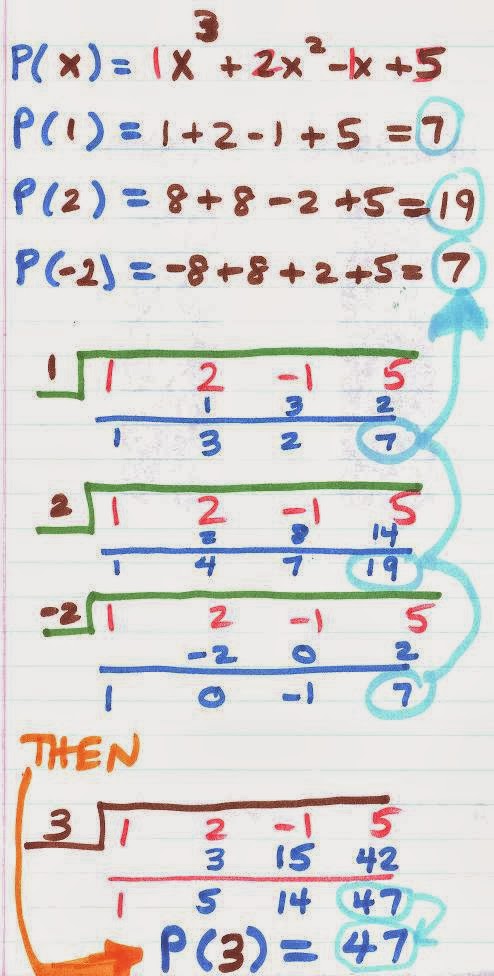 P(x) = 1x³ + 2x² - 1x + 5
P(1) = 1 + 2 - 1 + 5 = 7
P(2) = 8 + 8 - 2 + 5 = 19
P(-2) = -8 + 8 + 2 + 5 = 7
1 1 2 -1 5
1 3 2
1 3 2 7
2 1 2 -1 5
2 8 14
1 4 7 19
-2 1 2 -1 5
-2 0 2
1 0 -1 7
THEN
3 1 2 -1 5
3 15 42
1 5 14 47
P(3) = 47